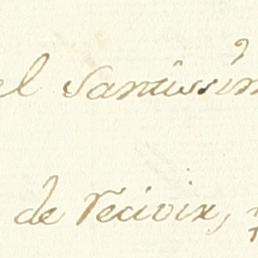 el Santissim
de recivir,